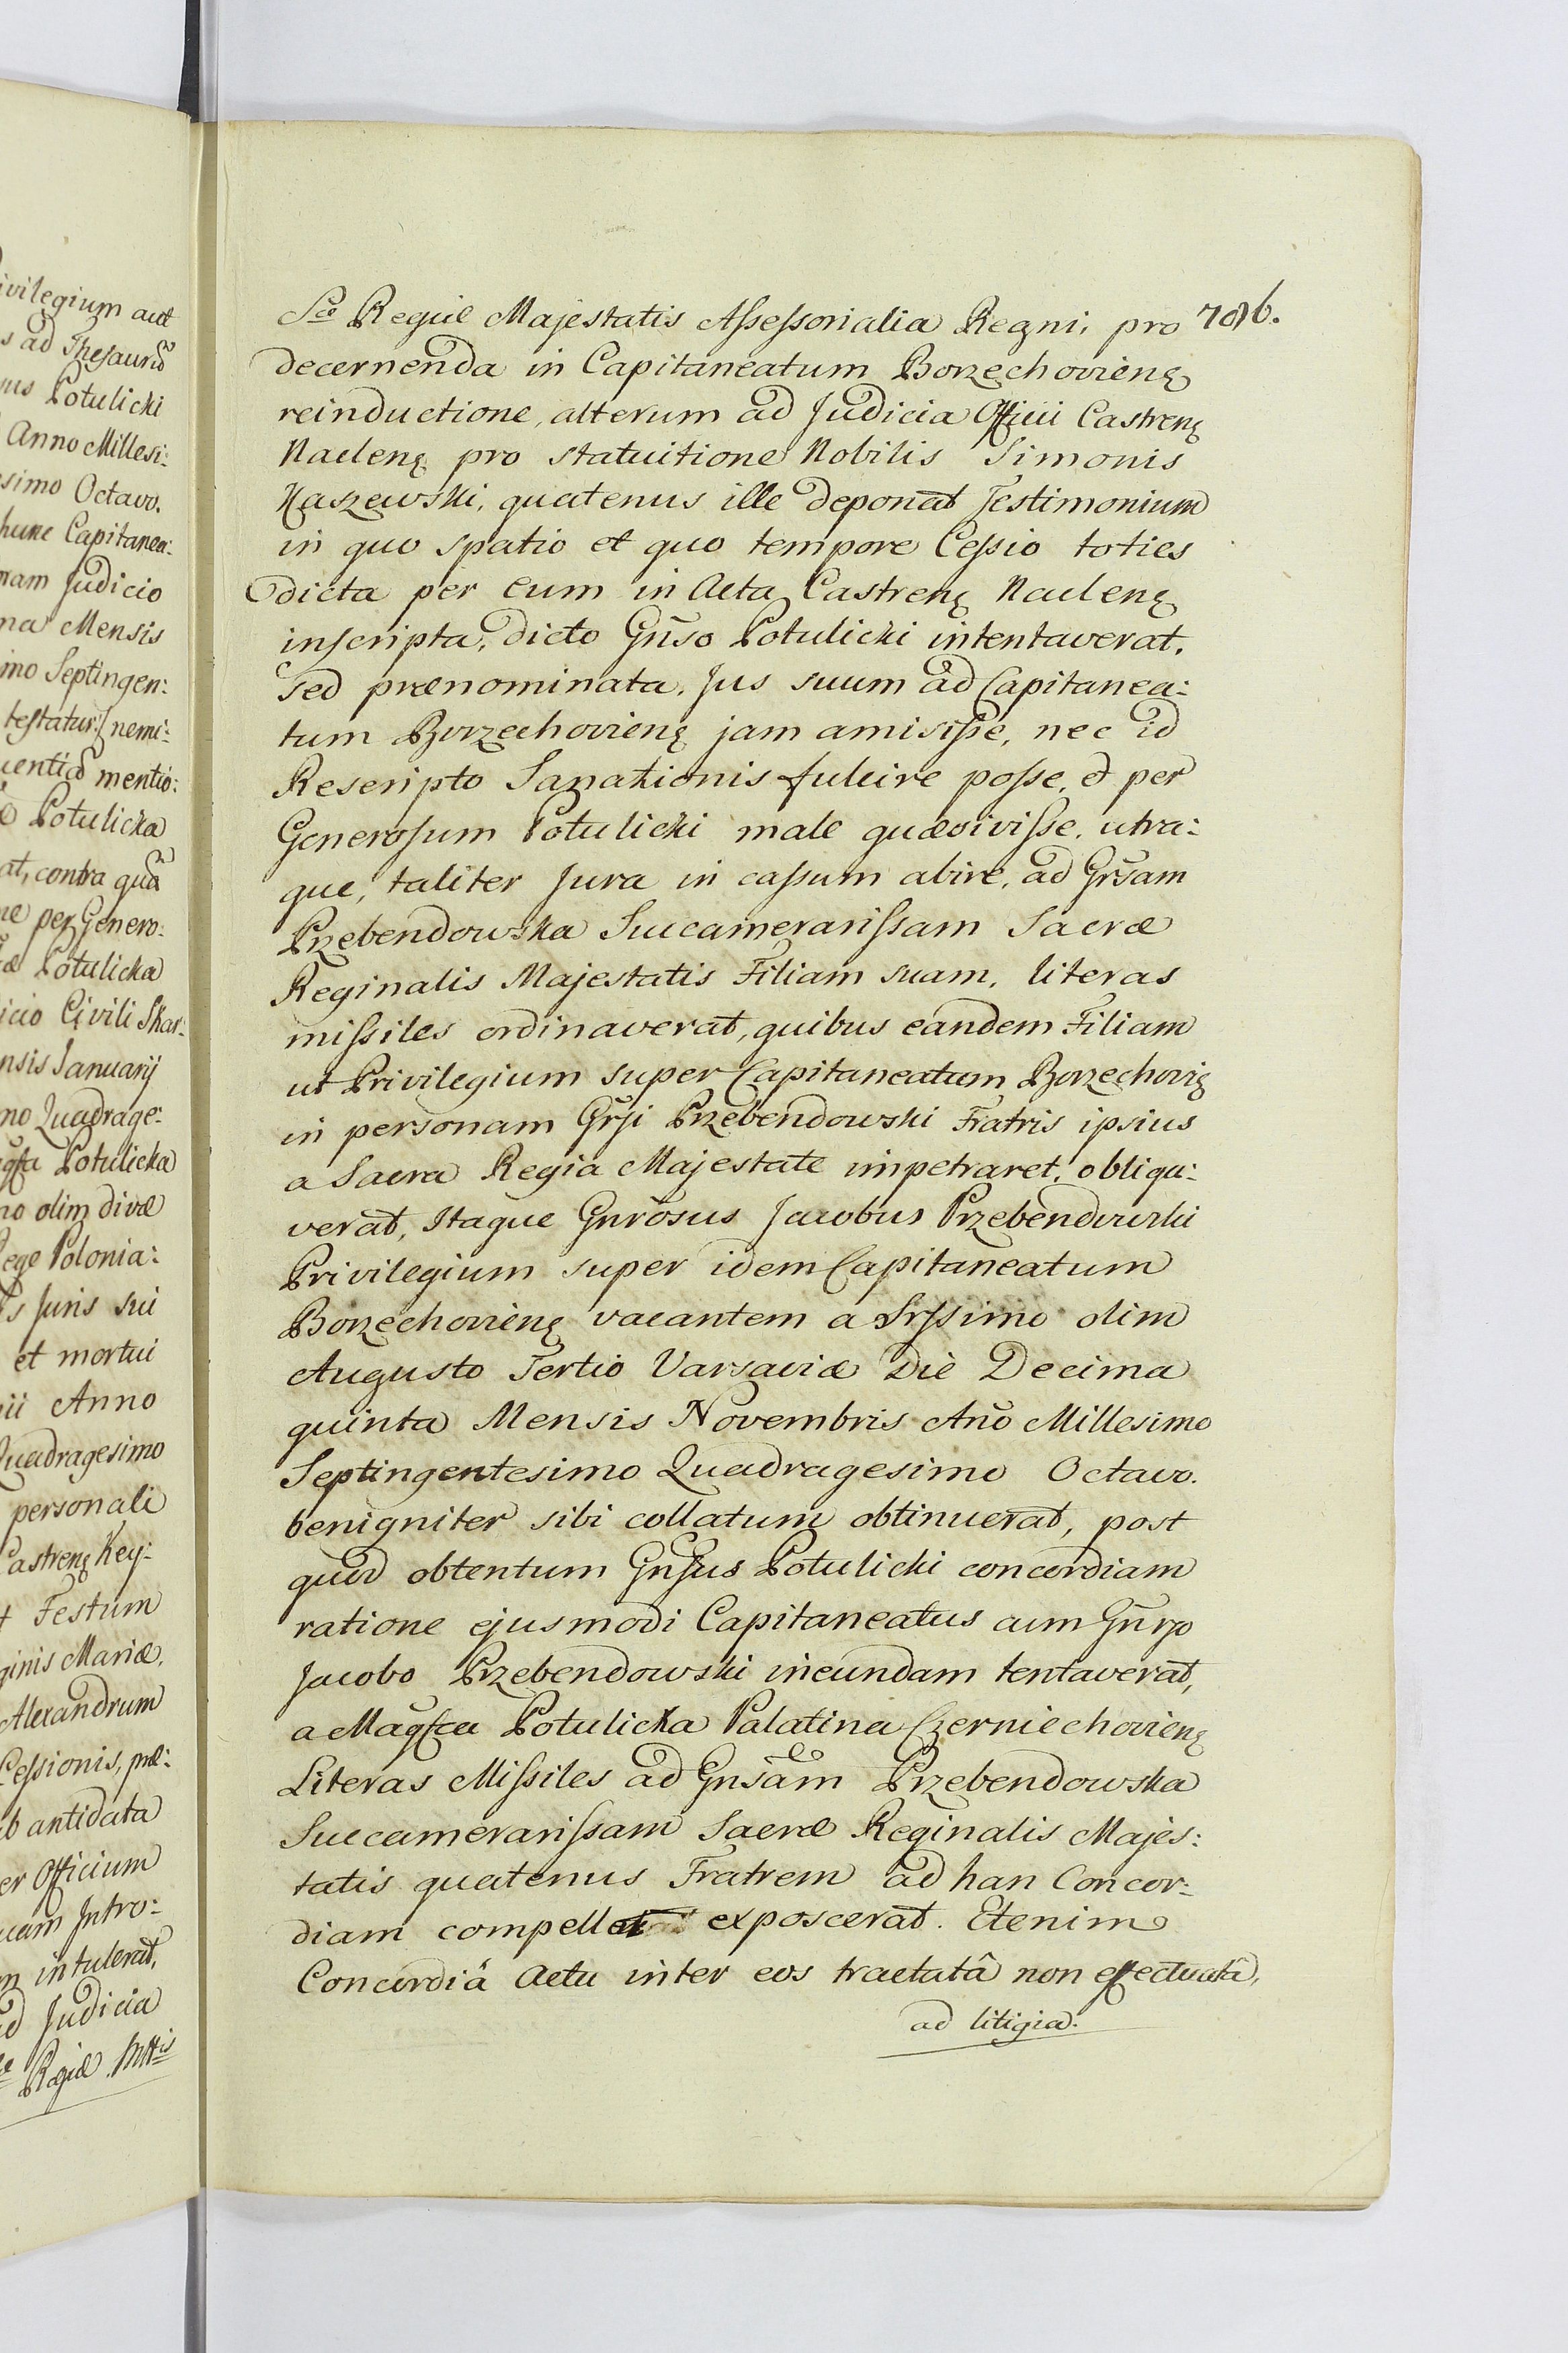 ivilegium aut
s ad Thesaurũ
nus Potulicki
Anno Millesi:
simo Octavo.
hunc Capitanea:
nam Judicio
na Mensis
imo Septingen:
testatur:/ nemi:
uentiã mentio:
Potulicka
at, contra quã
ne per Genero:
æ Potulicka
icio Civili Skar:
nsis Januarij
mo Quadrage:
Potulicka
no olim divæ
Rege Polonia:
s Juris sui
et mortui
ii Anno
Quadragesimo
personali
Castrenę Key:
Festum
ginis Mariæ,
Alexandrum
Cessionis, præ:
b antidata
er Officium
uam Intro:
m intulerat,
ad Judicia
Regiæ Mttis
Sæ Regiæ Majestatis Assessorialia Regni, pro 786.
decernenda in Capitaneatum Borzechovienę
reinductione, alterum ad Judicia Officii Castrenę
Naclenę pro statuitione Nobilis Simonis
Kaszewski, quatenus ille deponat Testimonium
in quo spatio et quo tempore Cessio toties
dicta per eum in Acta Castrenę Naclenę
inscripta, dicto Gñso Potulicki intentaverat.
Sed prænominata, Jus suum ad Capitanea:
tum Borzechovienę jam amisisse, nec id
Rescripto Sanationis fulcire posse, et per
Generosum Potulicki male quæsivisse, utra:
que, taliter Jura in cassum abire, ad Grsam
Przebendowska Succamerarissam Sacræ
Reginalis Majestatis Filiam suam, literas
missiles ordinaverat, quibus eandem Filiam
ut Privilegium super Capitaneatum Borzechovię
in personam Grsi Przebendowski Fratris ipsius
a Sacra Regia Majestate impetraret, obliga:
verat, Itaque Gnrõsus Jacobus Przebendowski
Privilegium super idem Capitaneatum
Borzechovienę vacantem a Srssimo olim
Augusto Tertio Varsaviæ Die Decima
quinta Mensis Novembris Año Millesimo
Septingentesimo Quadragesimo Octavo.
benigniter sibi collatum obtinuerat, post
quod obtentum Gnsus Potulicki concordiam
ratione ejusmodi Capitaneatus cum Gñrso
Jacobo Przebendowski ineundam tentaverat,
a Magfca Potulicka Palatina Czerniechovienę
Literas Missiles ad Gnsam Przebendowska
Succamerarissam Sacræ Reginalis Majes:
tatis quatenus Fratrem ad han Concor:
diam compellet exposcerat. Etenim
Concordiâ Actu inter eos tractatâ non effectuatâ,
ad litigia.